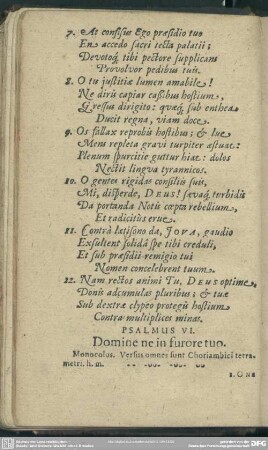 7. At confisus Ego præsidio tuo
En accedo sacri tecta palatii;
Devotoq; tibi pectore supplicans
Provolvor pedibus tuis.
8. O tu justitiæ lumen amabile!
Ne diris capiar cassibus hostium,
Gressus dirigito: quæq; sub enthea
Ducit regna, viam doce.
9. Os fallax reprobis hostibus; & lue
Mens repleta gravi turpiter æstuat:
Plenum spurcitie guttur hiat: dolos
Nectit lingva tyrannicos.
10. O gentes rigidas consilii sui,
Mi, disperde, DEUS! sævaq; turbidis
Da portanda Notis cœpta rebellium,
Et radicitus erue.
11. Contrà lætisono da, JOVA, gaudio
Exsultent solidâ spe tibi creduli,
Et sub præsidii remigio tui
Nomen concelebrent tuum.
12. Nam rectos animi Tu, DEUS optime,
Donis adcumulas pluribus; & tuæ
Sub dextræ clypeo protegis hostium
Contra multiplices minas.
PSALMUS VI.
Domine ne in furore tuo.
Monocolos. Versus omnes sunt Choriambici tetra-
metri. h. m.